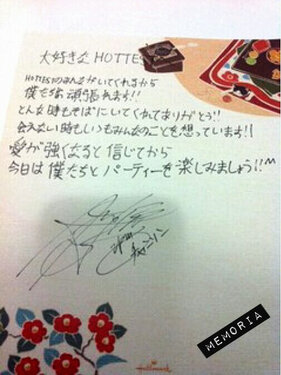 大好きな HOTTEST
HOTTESTのみんながいてくれるから
僕たちは頑張れます!!
どんな時もそばにいてくれてありがとう!!
会えない時もいつもみんなのことを想っています!!
愛が強くなると信じてから
今日は僕たちとパーティーを楽しみましょう!!^^
チャンソン
MEMORIA
Hallmark